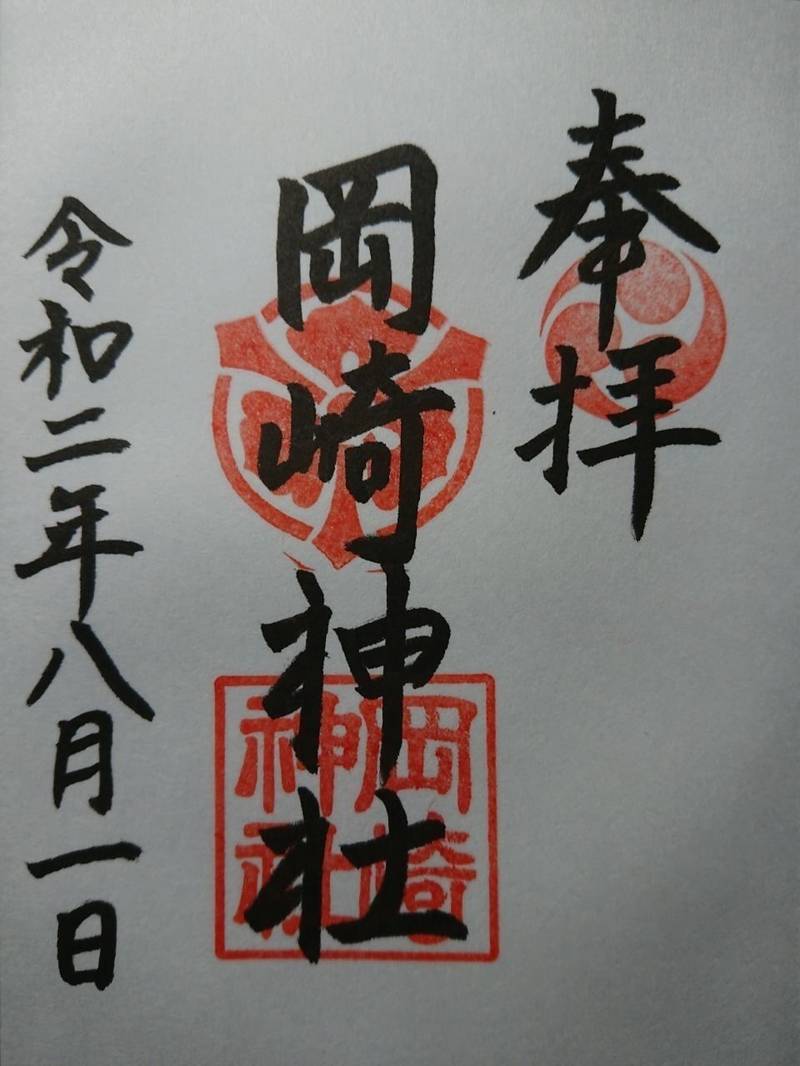 奉拝
岡崎神社
岡崎
神社
令和二年八月一日